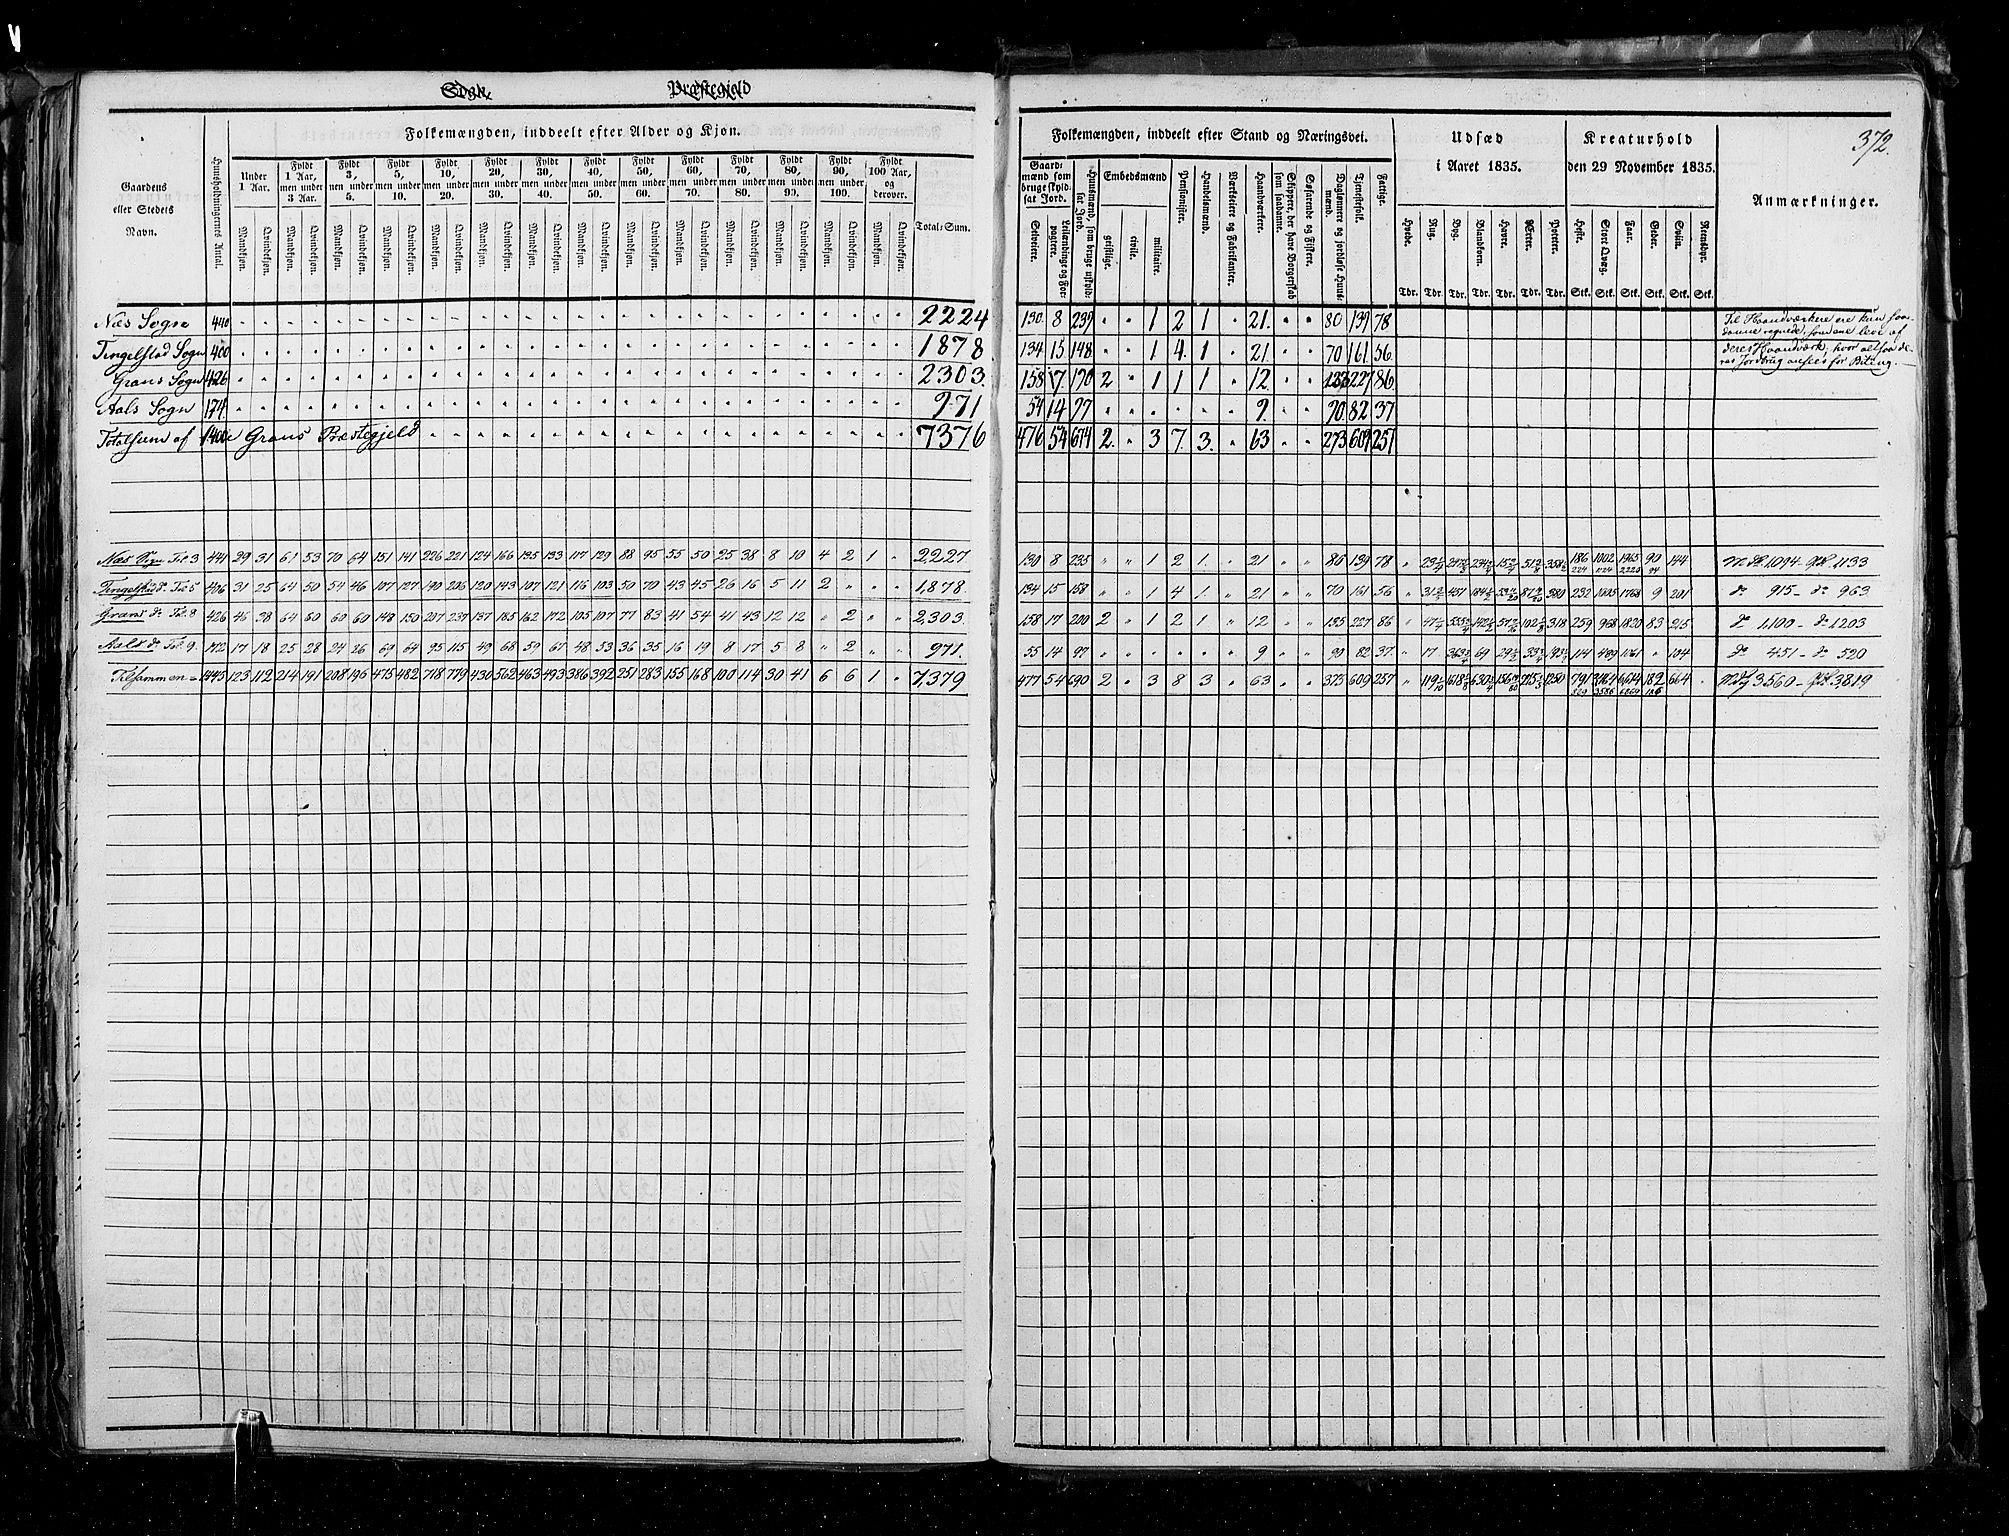 Sogn, Præstegield
Folkemængden, inddeelt efter Alder og Kjøn.
Gaardens eller Stedets Navn.
Huusholdningernes Antal.
Under 1 Aar.
Fyldt 1 Aar, men under 3 Aar.
Fyldt 3, men under 5.
Fyldt 5, men under 10.
Fyldt 10, men under 20.
Fyldt 20, men under 30.
Fyldt 30, men under 40.
Fyldt 40, men under 50.
Fyldt 50, men under 60.
Fyldt 60, men under 70.
Fyldt 70, men under 80.
Fyldt 80, men under 90.
Fyldt 90, men under 100.
Fyldt 100 Aar, og derover.
Total-Sum.
Mandkjøn. Qvindekjøn. Mandkjøn. Qvindekjøn. Mandkjøn. Qvindekjøn. Mandkjøn. Qvindekjøn. Mandkjøn. Qvindekjøn. Mandkjøn. Qvindekjøn. Mandkjøn. Qvindekjøn. Mandkjøn. Qvindekjøn. Mandkjøn. Qvindekjøn. Mandkjøn. Qvindekjøn. Mandkjøn. Qvindekjøn. Mandkjøn. Qvindekjøn. Mandkjøn. Qvindekjøn. Mandkjøn. Qvindekjøn.
Næs Sogn 440 2224
Tingelstad Sogn 400 1878
Grans Sogn 426 2303.
Aals Sogn 174 971
Totalsum af Grans Præstegjeld 7376
Næs Sogn Fol. 3 441 29 31 61 53 70 64 151 141 226 221 124 166 135 133 117 129 88 95 55 50 25 38 8 10 4 2 1 2,227.
Tingelstad do Fol. 5 406 31 25 64 50 54 46 107 127 190 206 120 143 107 121 116 103 50 70 43 45 26 16 5 11 2 1,878.
Grans do Fol. 8 426 46 38 64 60 60 60 148 150 207 237 137 185 162 172 105 107 77 83 41 54 41 43 12 12 " 2 2,303.
Aals do Fol. 9. 172 17 18 25 28 24 26 69 64 95 115 49 68 59 67 48 53 36 35 16 19 8 17 5 8 " 2 971.
Tilsammen = 123 112 214 191 208 196 475 482 718 779 430 562 463 493 386 392 251 283 155 168 100 114 30 41 6 6 1 7,379
372.
Folkemængden, inddeelt efter Stand og Næringsvei.
Udsæd i Aaret 1835.
Kreaturhold den 29 November 1835.
Anmærkninger.
Gaardmænd som bruge skyldsat Jord.
Selveiere.
Leilændinge og Forpagtere.
Huusmænd, som bruge uskyldsat Jord.
Embedsmænd
geistlige.
civile.
militaire.
Pensionister.
Handelsmænd.
Værkseiere og Fabrikanter.
Haandværkere.
Skippere, der have Borgerskab som saadanne.
Søfarende og Fiskere.
Daglønnere og jordløse Huusmænd.
Tjenestefolk.
Fattige.
Hvede. Rug. Byg. Blandkorn. Havre. Erter. Poteter.
Heste. Stort Qvæg. Faar. Geder. Sviin. Reensdyr.
Tdr. Tdr. Tdr. Tdr. Tdr. Tdr. Tdr. Stk. Stk. Stk. Stk. Stk. Stk.
130. 8 239 1 2 1 21. 80 139 78
Til Haandværkere ere kun saadanne regnede, som ene leve af
134 15. 148 1 4. 1 21. 70 161 56
deres Haandværk, hvor altsaa deres Jordbrug ansees for Bating.
158 17. 170 2 1 1 1 12. 227 86
54 14 97 9. 90 82 37
476 54 674 2. 3 7. 3. 63 273 609 257
130 8 235 " " 1 2 1. 21 139 78 186 1002 1965 90 144
224 1124 2220 94
M do 1094 1133
134 15 158 " " 1 4 1. 21 70 161 56 457 580 232 1105 1768 9 201 do 915 – do 963
158 17 200 2 " 1 2 1 12 227 86 318 259 968 1820 83 215 do 1,100 – do 1203
55 14 97 9 90 82 37. 17 69 114 489 1061 " 104 do 451 – do 520
477 54 690 2 3 8 3 63 373 609 257 1250 791 6614 182 664 3,560 – 3,819
829 3586 6869 186